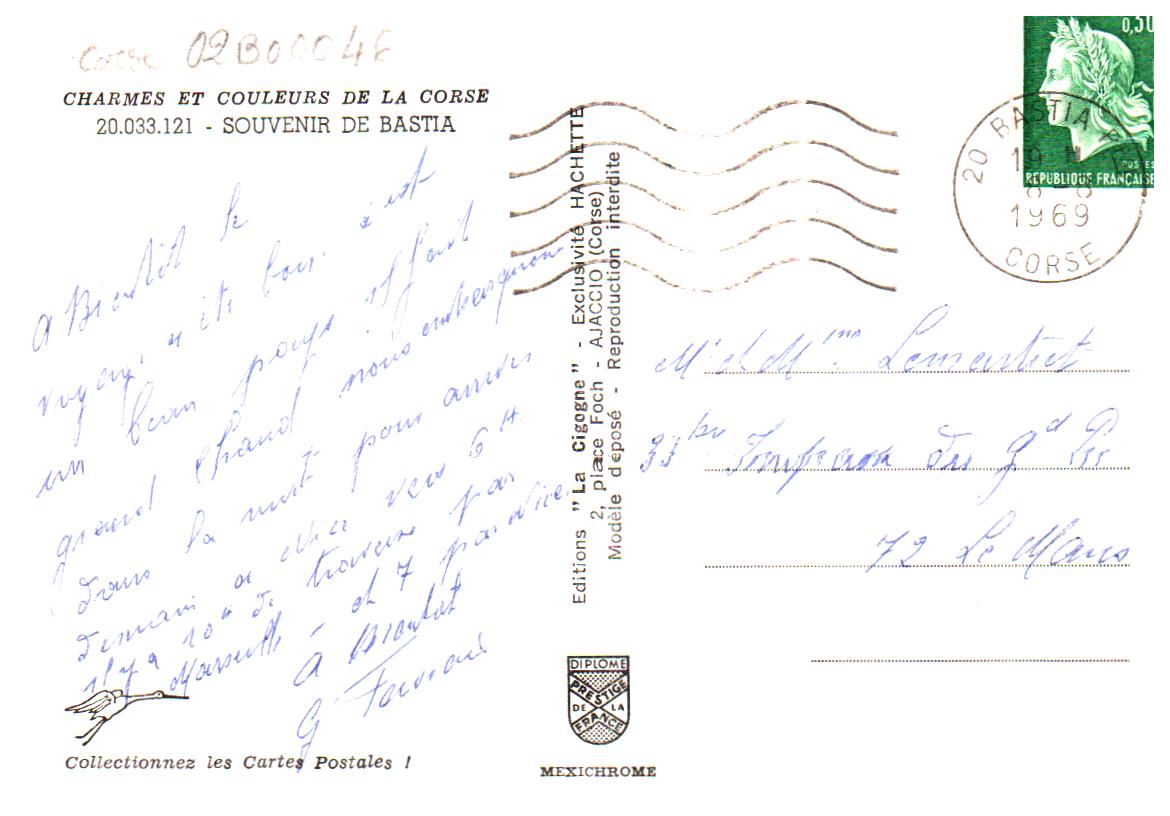 Corse 02B00046
CHARMES ET COULEURS DE LA CORSE
20.033.121 - SOUVENIR DE BASTIA
A Bientôt le
voyage a été bon. c'est
un beau pays il fait
grand chaud nous embarquons
dans la nuit pour
demain a vers 6 H.
il y a 10 H de traverse par
Marseille - et 7 par
A Bientot
G
Collectionnez les Cartes Postales !
Editions "La Cigogne" - Exclusivité HACHETTE
2, place Foch - AJACCIO (Corse)
Modèle déposé - Reproduction interdite
DIPLOME
PRESTIGE
DE LA
FRANCE
MEXICHROME
0,30
POSTES
REPUBLIQUE FRANÇAISE
20 BASTIA
19 H
1969
CORSE
Mr et Mme
33 bis Impasse du Gd
72 Le Mans